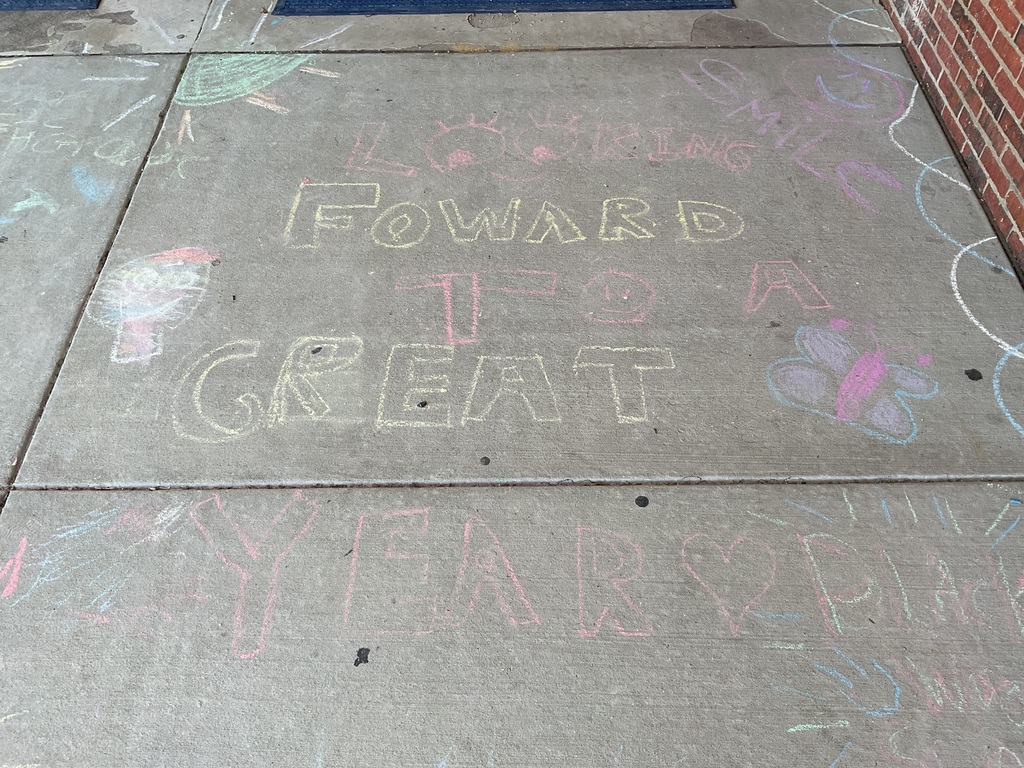 SMILE
LOOKING
FOWARD
TO A
GREAT
YEAR
Black